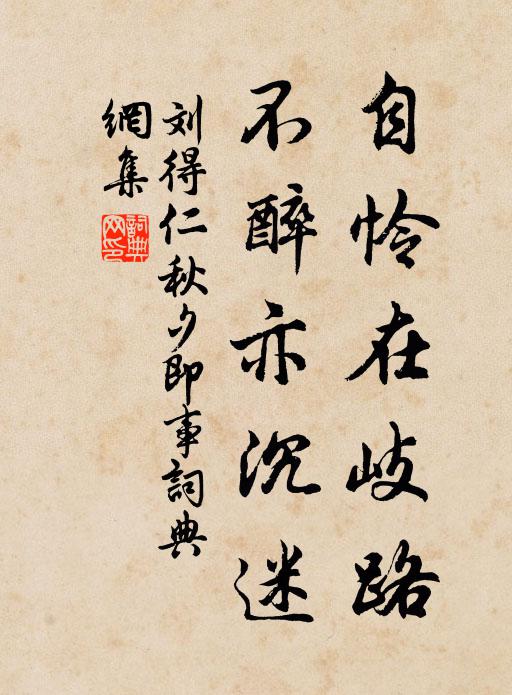 自怜在岐路
不醉亦沉迷
刘得仁秋夕即事詞典
網集
詞典網印